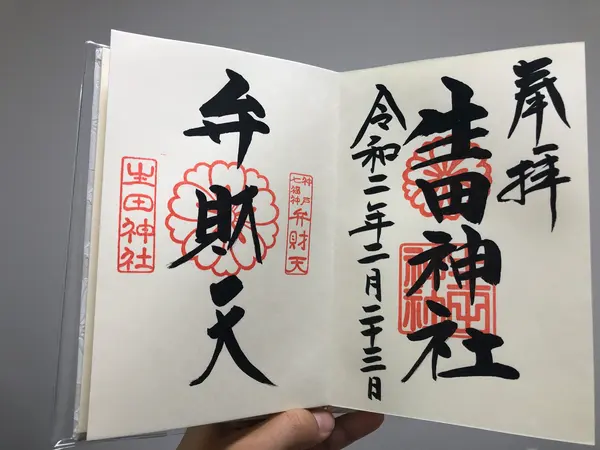 奉拝
生田神社
令和二年二月二十三日
神戸
七福神
弁財天
弁財天
生田神社